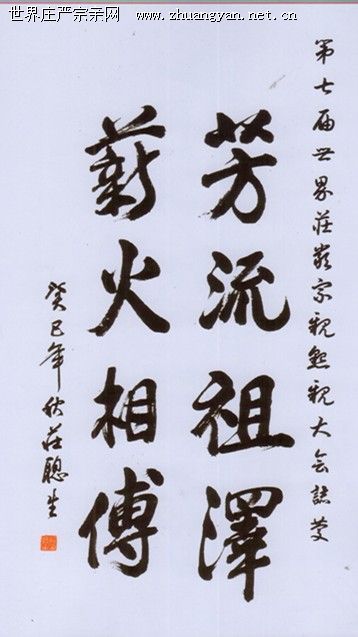 世界庄严宗亲网 www.zhuangyan.net.cn
第七届世界莊嚴宗親懇親大会誌慶
芳流祖澤
薪火相傳
癸巳年秋莊聰生